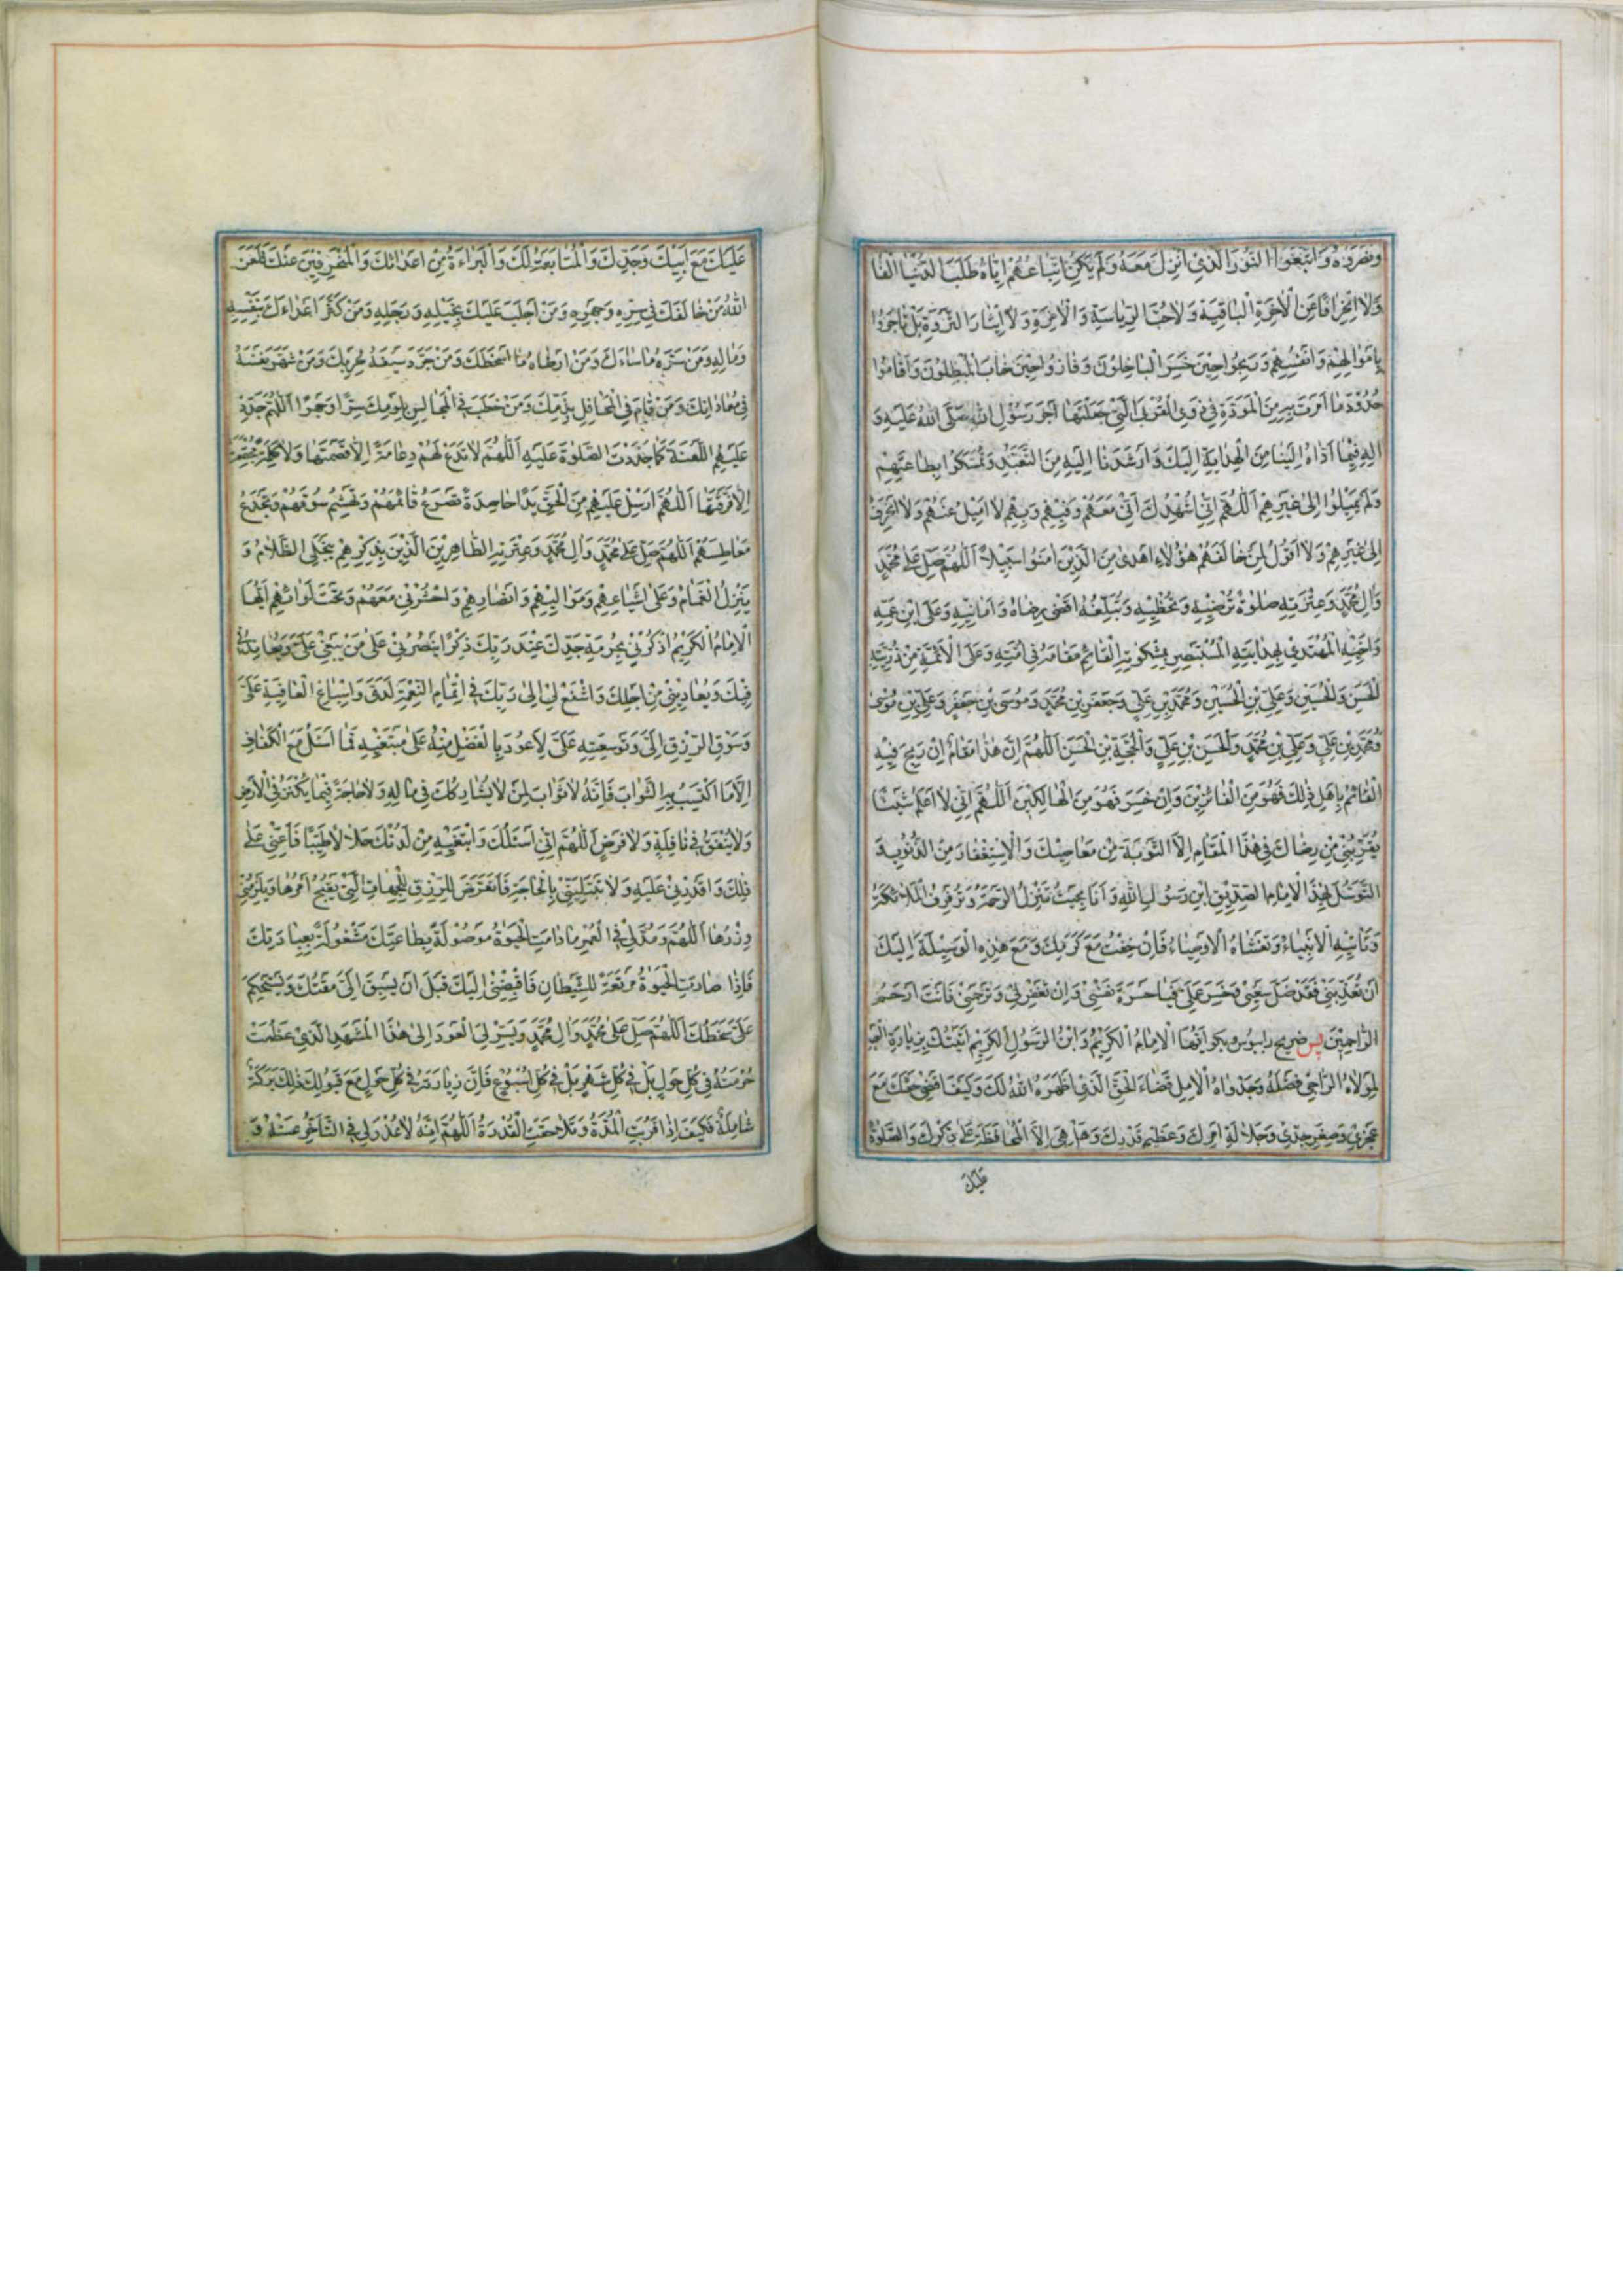 ونصروه واتبعوا النور الذي انزل معه ولم يكن اتباعهم اياه طلب الدنيا الفا
ولا انحرافا عن الاخرة الباقية ولا حب الرياسة والامرة ولا ايثار الثروة بل تاجروا
باموالهم وانفسهم وربحوا حين خسر الباخلون وفازوا حين خاب المبطلون واقاموا
حدود ما امرت به من المودة في ذوي القربى التي جعلتها اجر رسول الله صلى الله عليه و
اله فيما اداه الينا من الهداية اليك وارشدنا اليه من التعبد وتمسكوا بطاعتهم
ولم يميلوا الى غيرهم اللهم اني اشهدك اني معهم وفيهم وبهم لا اميل عنهم ولا انحرف
الى غيرهم ولا اقول لمن خالفهم هؤلاء اهدى من الذين امنوا سبيلا اللهم صل على محمد
وال محمد وعترته صلوة ترضيه وتحظيه وتبلغه اقصى رضاه وامانيه وعلى ابن عمه
واخيه المهتدي بهدايته المستبصر بمشكوته القائم مقامه في امته وعلى الائمة من ذريته
الحسن والحسين وعلي بن الحسين ومحمد بن علي وجعفر بن محمد وموسى بن جعفر وعلي بن موسى
ومحمد بن علي وعلي بن محمد والحسن بن علي والحجة بن الحسن اللهم ان هذا مقام ان ربح فيه
القائم باهل ذلك فهو من الفائزين وان خسر فهو من الهالكين اللهم اني لا اعلم شيئا
يقربني من رضاك في هذا المقام الا التوبة من معاصيك والاستغفار من الذنوب و
التوسل بهذا الامام الصديق ابن رسول الله وانا بحيث تنزل الرحمة وترفرف الملائكة
وتاتيه الانبياء وتغشاه الاوصياء فان خفت مع كرمك ومع هذه الوسيلة اليك
ان تعذبني فقد ضل سعيي وخسر عملي فيا حسرة نفسي وان تغفر لي وترحمني فانت ارحم
الراحمين پس ضريح را ببوس و بگو ايها الامام الكريم وابن الرسول الكريم اتيتك بزيارة العبد
لمولاه الراجي فضله وجدواه الامل قضاء الحق الذي اظهره الله لك وكيف اقضي حقك مع
عجزي وصغر جدي وجلالة امرك وعظيم قدرك وهل هي الا المحافظة على ذكرك والصلوة
عليك
عليك مع ابيك وجدك والمتابعة لك والبراءة من اعدائك والمنحرفين عنك فلعن
الله من خالفك في سره وجهره ومن اجلب عليك بخيله ورجله ومن كثر اعداءك بنفسه
وماله ومن سره ما ساءك ومن ارضاه ما اسخطك ومن جرد سيفه لحربك ومن شهر نفسه
في معاداتك ومن قام في المحافل بذمك ومن خطب في المجالس بلومك سرا وجهرا اللهم جدد
عليهم اللعنة كما جددت الصلوة عليه اللهم لا تدع لهم دعامة الا قصمتها ولا كلمة مجتمعة
الا فرقتها اللهم ارسل عليهم من الحق يدا حاصدة تصرع قائمهم وتهشم سوقهم وتجدع
معاطسهم اللهم صل على محمد وال محمد وعترته الطاهرين الذين بذكرهم ينجلي الظلام و
ينزل الغمام وعلى اشياعهم ومواليهم وانصارهم واحشرني معهم وتحت لوائهم ايها
الامام الكريم اذكرني بحرمة جدك عند ربك ذكرا ينصرني على من يبغي علي ويعاندني
فيك ويعاديني من اجلك واشفع لي الى ربك في اتمام النعمة لدي واسباغ العافية علي
وسوق الرزق الي وتوسيعه علي لاعود بالفضل منه على مبتغيه فما اسئل مع الكفاف
الا ما اكتسب به الثواب فانه لا ثواب لمن لا يشاركك في ماله ولا حاجة فيما يكنز في الارض
ولا ينفق في نافلة ولا فرض اللهم اني اسئلك وابتغيه من لدنك حلالا طيبا فاعني على
ذلك واقدرني عليه ولا تبتليني بالحاجة فاتعرض للرزق للجهات التي يقبح امرها ويلزمني
وزرها اللهم ومد لي في العمر ما دامت الحيوة موصولة بطاعتك مشغولة بعبادتك
فاذا صارت الحيوة مرتعة للشيطان فاقبضني اليك قبل ان يسبق الي مقتك ويستحكم
علي سخطك اللهم صل على محمد وال محمد ويسر لي العود الى هذا المشهد الذي عظمت
حرمته في كل حول بل في كل شهر بل في كل اسبوع فان زيارته في كل حول مع قبولك ذلك بركة
شاملة فكيف اذا قربت المدة وتلاحقت القدرة اللهم انه لا عذر لي في التاخر عنه و